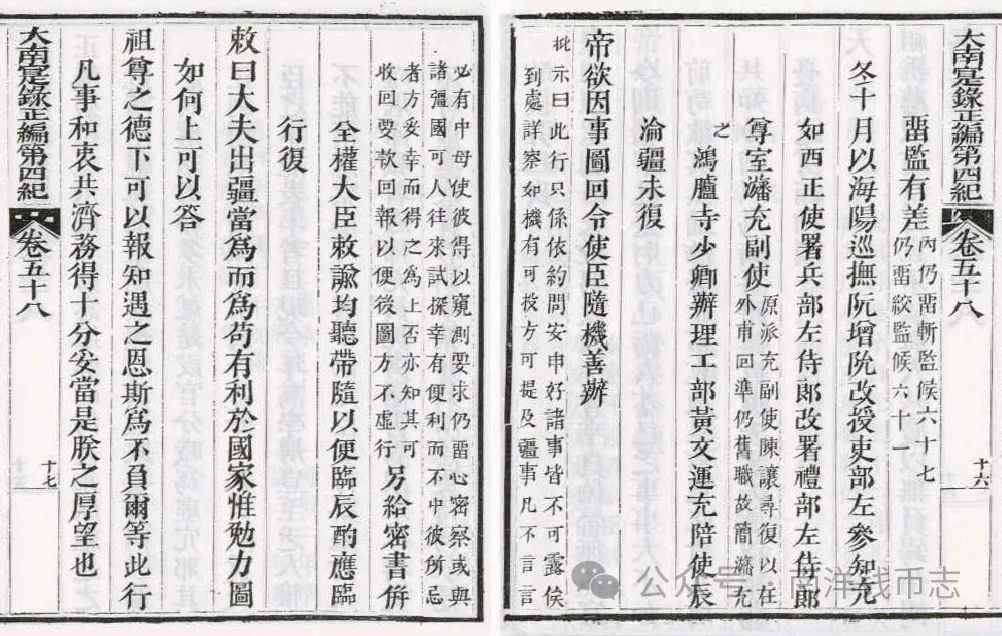 大南寔錄正編第四紀
卷五十八
十六
畱監有差
內仍畱斬監候六十七
仍畱絞監候六十一
冬十月以海陽巡撫阮增阭改授吏部左參知充
如西正使署兵部左侍郎改署禮部左侍郎
尊室藩充副使
原派充副使陳讓尋復以在
外甫回準仍舊職故簡藩充
之
鴻臚寺少卿辦理工部黃文運充陪使辰
淪疆未復
帝欲因事圖回令使臣隨機善辦
批示曰此行只係依約問安申好諸事皆不可露俟
到處詳察如機有可投方可提及疆事凡不言言
大南寔錄正編第四紀
卷五十八
十七
必有中毋使彼得以窺測要求仍畱心密察或與
諸彊國可人往來試探幸有便利而不中彼所忌
者方妥幸而得之爲上否亦知其可
收回要欵回報以便後圖方不虛行
另給密書倂
全權大臣敕諭均聽帶隨以便臨辰酌應臨
行復
敕曰大夫出疆當爲而爲苟有利於國家惟勉力圖
如何上可以答
祖尊之德下可以報知遇之恩斯爲不負爾等此行
凡事和衷共濟務得十分妥當是朕之厚望也
公众号·南洋钱币志